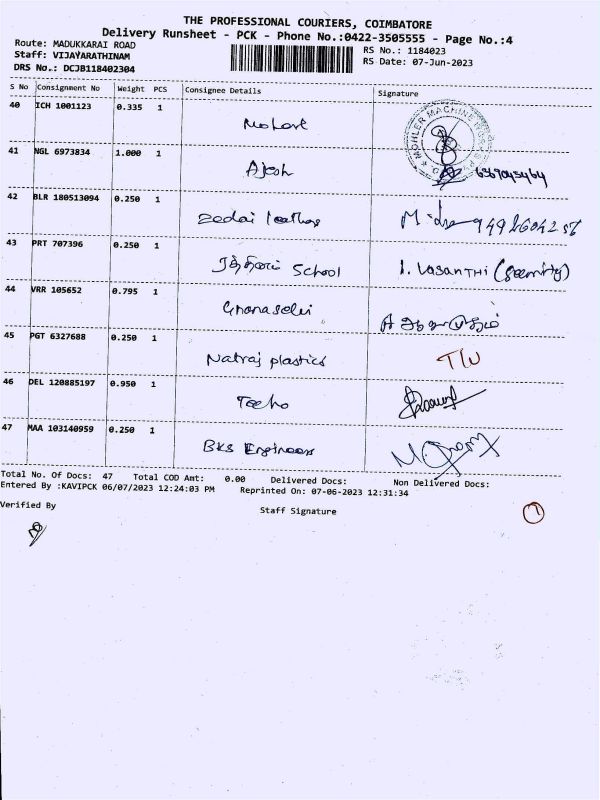 THE PROFESSIONAL COURIERS, COIMBATORE
Delivery Runsheet - PCK - Phone No.:0422-3505555 - Page No.:4
Route: MADUKKARAI ROAD
Staff: VIJAYARATHINAM
DRS No.: DCJB118402304
RS No.: 1184023
RS Date: 07-Jun-2023
S No Consignment No Weight PCS Consignee Details Signature
40 ICH 1001123 0.335 1
MOHLER MACHINE
41 NGL 6973834 1.000 1 Ajesh
42 BLR 180513094 0.250 1
43 PRT 707396 0.250 1 School I. VASANTHI (Security)
44 VRR 105652 0.795 1 Gnanaselvi
45 PGT 6327688 0.250 1 Natraj plastics
46 DEL 120885197 0.950 1
47 MAA 103140959 0.250 1 BKS Engineers
Total No. Of Docs: 47 Total COD Amt: 0.00 Delivered Docs: Non Delivered Docs:
Entered By :KAVIPCK 06/07/2023 12:24:03 PM Reprinted On: 07-06-2023 12:31:34
Verified By Staff Signature
7